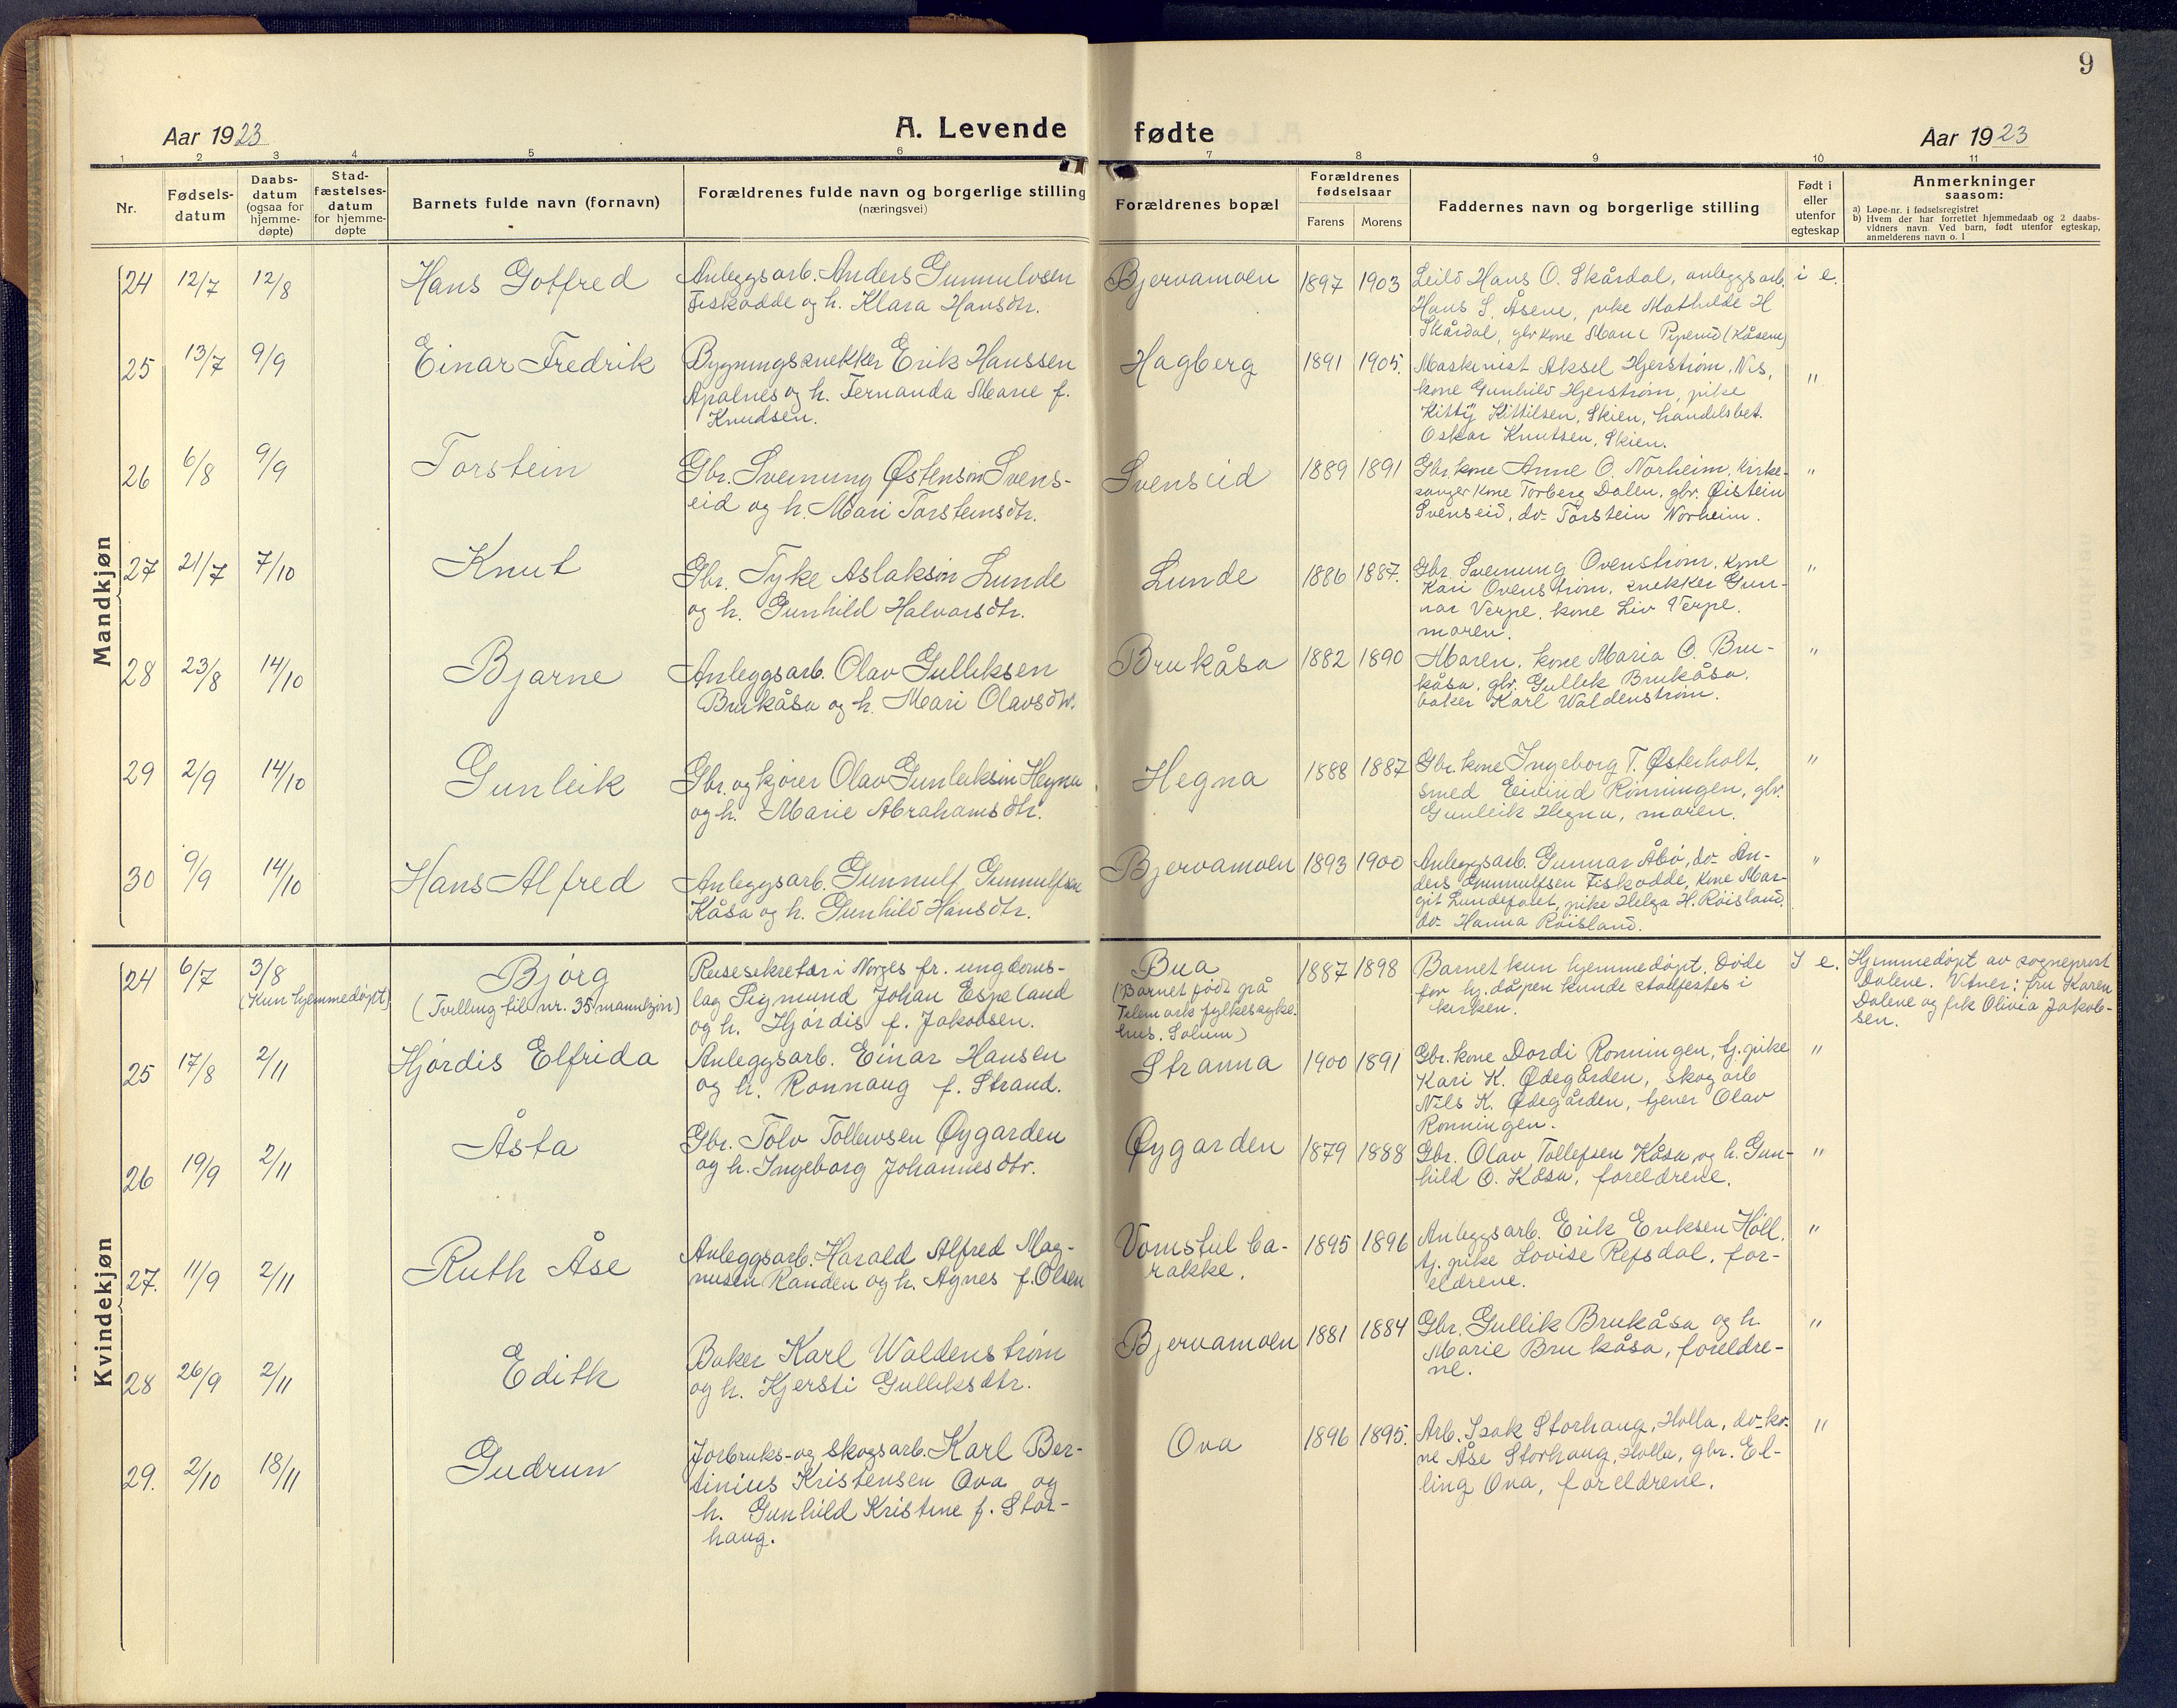 9
Aar 1923
A. Levende fødte
Aar 1923
1 2 3 4 5 6 7 8 9 10 11
Nr.
Fødsels-
datum
Daabs-
datum
(ogsaa for
hjemme-
døpte)
Stad-
fæstelses-
datum
for hjemme-
døpte
Barnets fulde navn (fornavn)
Forældrenes fulde navn og borgerlige stilling
(næringsvei)
Forældrenes bopæl
Forældrenes
fødselsaar
Farens Morens
Faddernes navn og borgerlige stilling
Født i
eller
utenfor
egteskap
Anmerkninger
saasom:
a) Løpe-nr. i fødselsregistret
b) Hvem der har forrettet hjemmedaab og 2 daabs-
vidners navn. Ved barn, født utenfor egteskap,
anmelderens navn o. l
Mandkjøn
24 12/7 12/8 Hans Gotfred
Anleggsarb. Anders Gunnulvsen
Fiskodde og h. Klara Hansdtr.
Bjervamoen 1897 1903
Leild Hans O. Skårdal, anleggsarb.
Hans S. Åsene, pike Mathilde H
Skårdal, gbrkone Mari Piperud (Kåsene)
i e.
25 13/7 9/9 Einar Fredrik
Bygningssnekker Erik Hanssen
Apalnes og h. Fernanda Marie f.
Knudsen.
Hagberg 1891 1905.
Maskinist Aksel Hjerstrøm, Nis,
kone Gunhild Hjerstrøm, pike
Kitty Kittilsen, Skien, handelsbet.
Oskar Knutsen, Skien.
"
26 6/8 9/9 Torstein
Gbr. Sveinung Østenson Svens-
eid og h. Mari Torsteinsdtr.
Svenseid 1889 1891
Gbr. kone Anne O. Norheim, kirke-
sanger kone Torberg Dalen, gbr. Øistein
Svenseid, do- Torstein Norheim.
"
27 21/7 7/10 Knut
Gbr. Tyke Aslakson Lunde
og h. Gunhild Halvorsdtr.
Lunde 1886 1887.
Gbr. Sveinung Ovenstrøm, kone
Kari Ovenstrøm, snekker Gun-
nar Verpe, kone Liv Verpe,
moren.
"
28 23/8 14/10 Bjarne
Anleggsarb. Olav Gulliksen
Brukåsa og h. Mari Olavsdtr.
Brukåsa 1882 1890
Moren, kone Maria O. Bru-
kåsa, gbr. Gullek Brukåsa,
baker Karl Waldenstrøm.
"
29 2/9 14/10 Gunleik
Gbr. og kjører Olav Gunleikson Hegna
og h. Marie Abrahamsdtr.
Hegna 1888 1887
Gbr. kone Ingeborg T. Østerholt,
smed Eivind Rønningen, gbr.
Gunleik Hegna, moren.
"
30 9/9 14/10 Hans Alfred
Anleggsarb. Gunnulf Gunnulfsen
Kåsa og h. Gunhild Hansdtr.
Bjervamoen 1893 1900
Anleggsarb. Gunnar Åbø, do- An-
ders Gunnulfsen Fiskodde, kone Mar-
git Lundefaret, pike Helga H. Røisland,
do- Hanna Røisland.
"
Kvindekjøn
24 6/7 3/8 Bjørg
(Kun hjemmedøpt)
(Tvilling til nr. 35 mannkjøn)
Reisesekretær i Norges fr. ungdoms-
lag Sigmund Johan Espeland
og h. Hjørdis f. Jakobsen.
Bua
(Barnet født på
Telemark fylkessyke-
hus. Solum)
1887 1898
Barnet kun hjemmedøpt. Døde
før hj. dåpen kunde stadfestes i
kirken.
I e.
Hjemmedøpt av sogneprest
Dalene. Vitner: fru Karen
Dalene og frk Olivia Jakob-
sen.
25 17/8 2/11 Hjørdis Elfrida
Anleggsarb. Einar Hansen
og h. Rønnaug f. Strand.
Stranna 1900 1891
Gbr. kone Dordi Rønningen, tj. pike
Kari K. Ødegården, skogarb
Nils K. Ødegården, tjener Olav
Rønningen.
"
26 19/9 2/11 Åsta
Gbr. Tolv Tollevsen Øygarden
og h. Ingeborg Johannesdtr.
Øygarden 1879 1888
Gbr. Olav Tollefsen Kåsa og h. Gun-
hild O. Kåsa, foreldrene.
"
27. 11/9 2/11 Ruth Åse
Anleggsarb. Harald Alfred Mag-
nusen Randen og h. Agnes f. Olsen
Vomstul ba-
rakke.
1895 1896
Anleggsarb. Erik Eriksen Holl,
tj. pike Lovise Refsdal, for-
eldrene.
"
28 26/9 2/11 Edith
Baker Karl Waldenstrøm
og h. Kjersti Gulliksdtr.
Bjervamoen 1881 1884
Gbr. Gullik Brukåsa og h.
Marie Brukåsa, foreldre-
ne.
"
29. 2/10 18/11 Gudrun
Jorbruks- og skogsarb. Karl Ber-
tinius Kristensen Ova og
h. Gunhild Kristine f. Stor-
haug.
Ova 1896 1895.
Arb. Isak Storhaug, Holla, do- ko-
ne Åse Storhaug, Holla, gbr. El-
ling Ova, foreldrene.
"